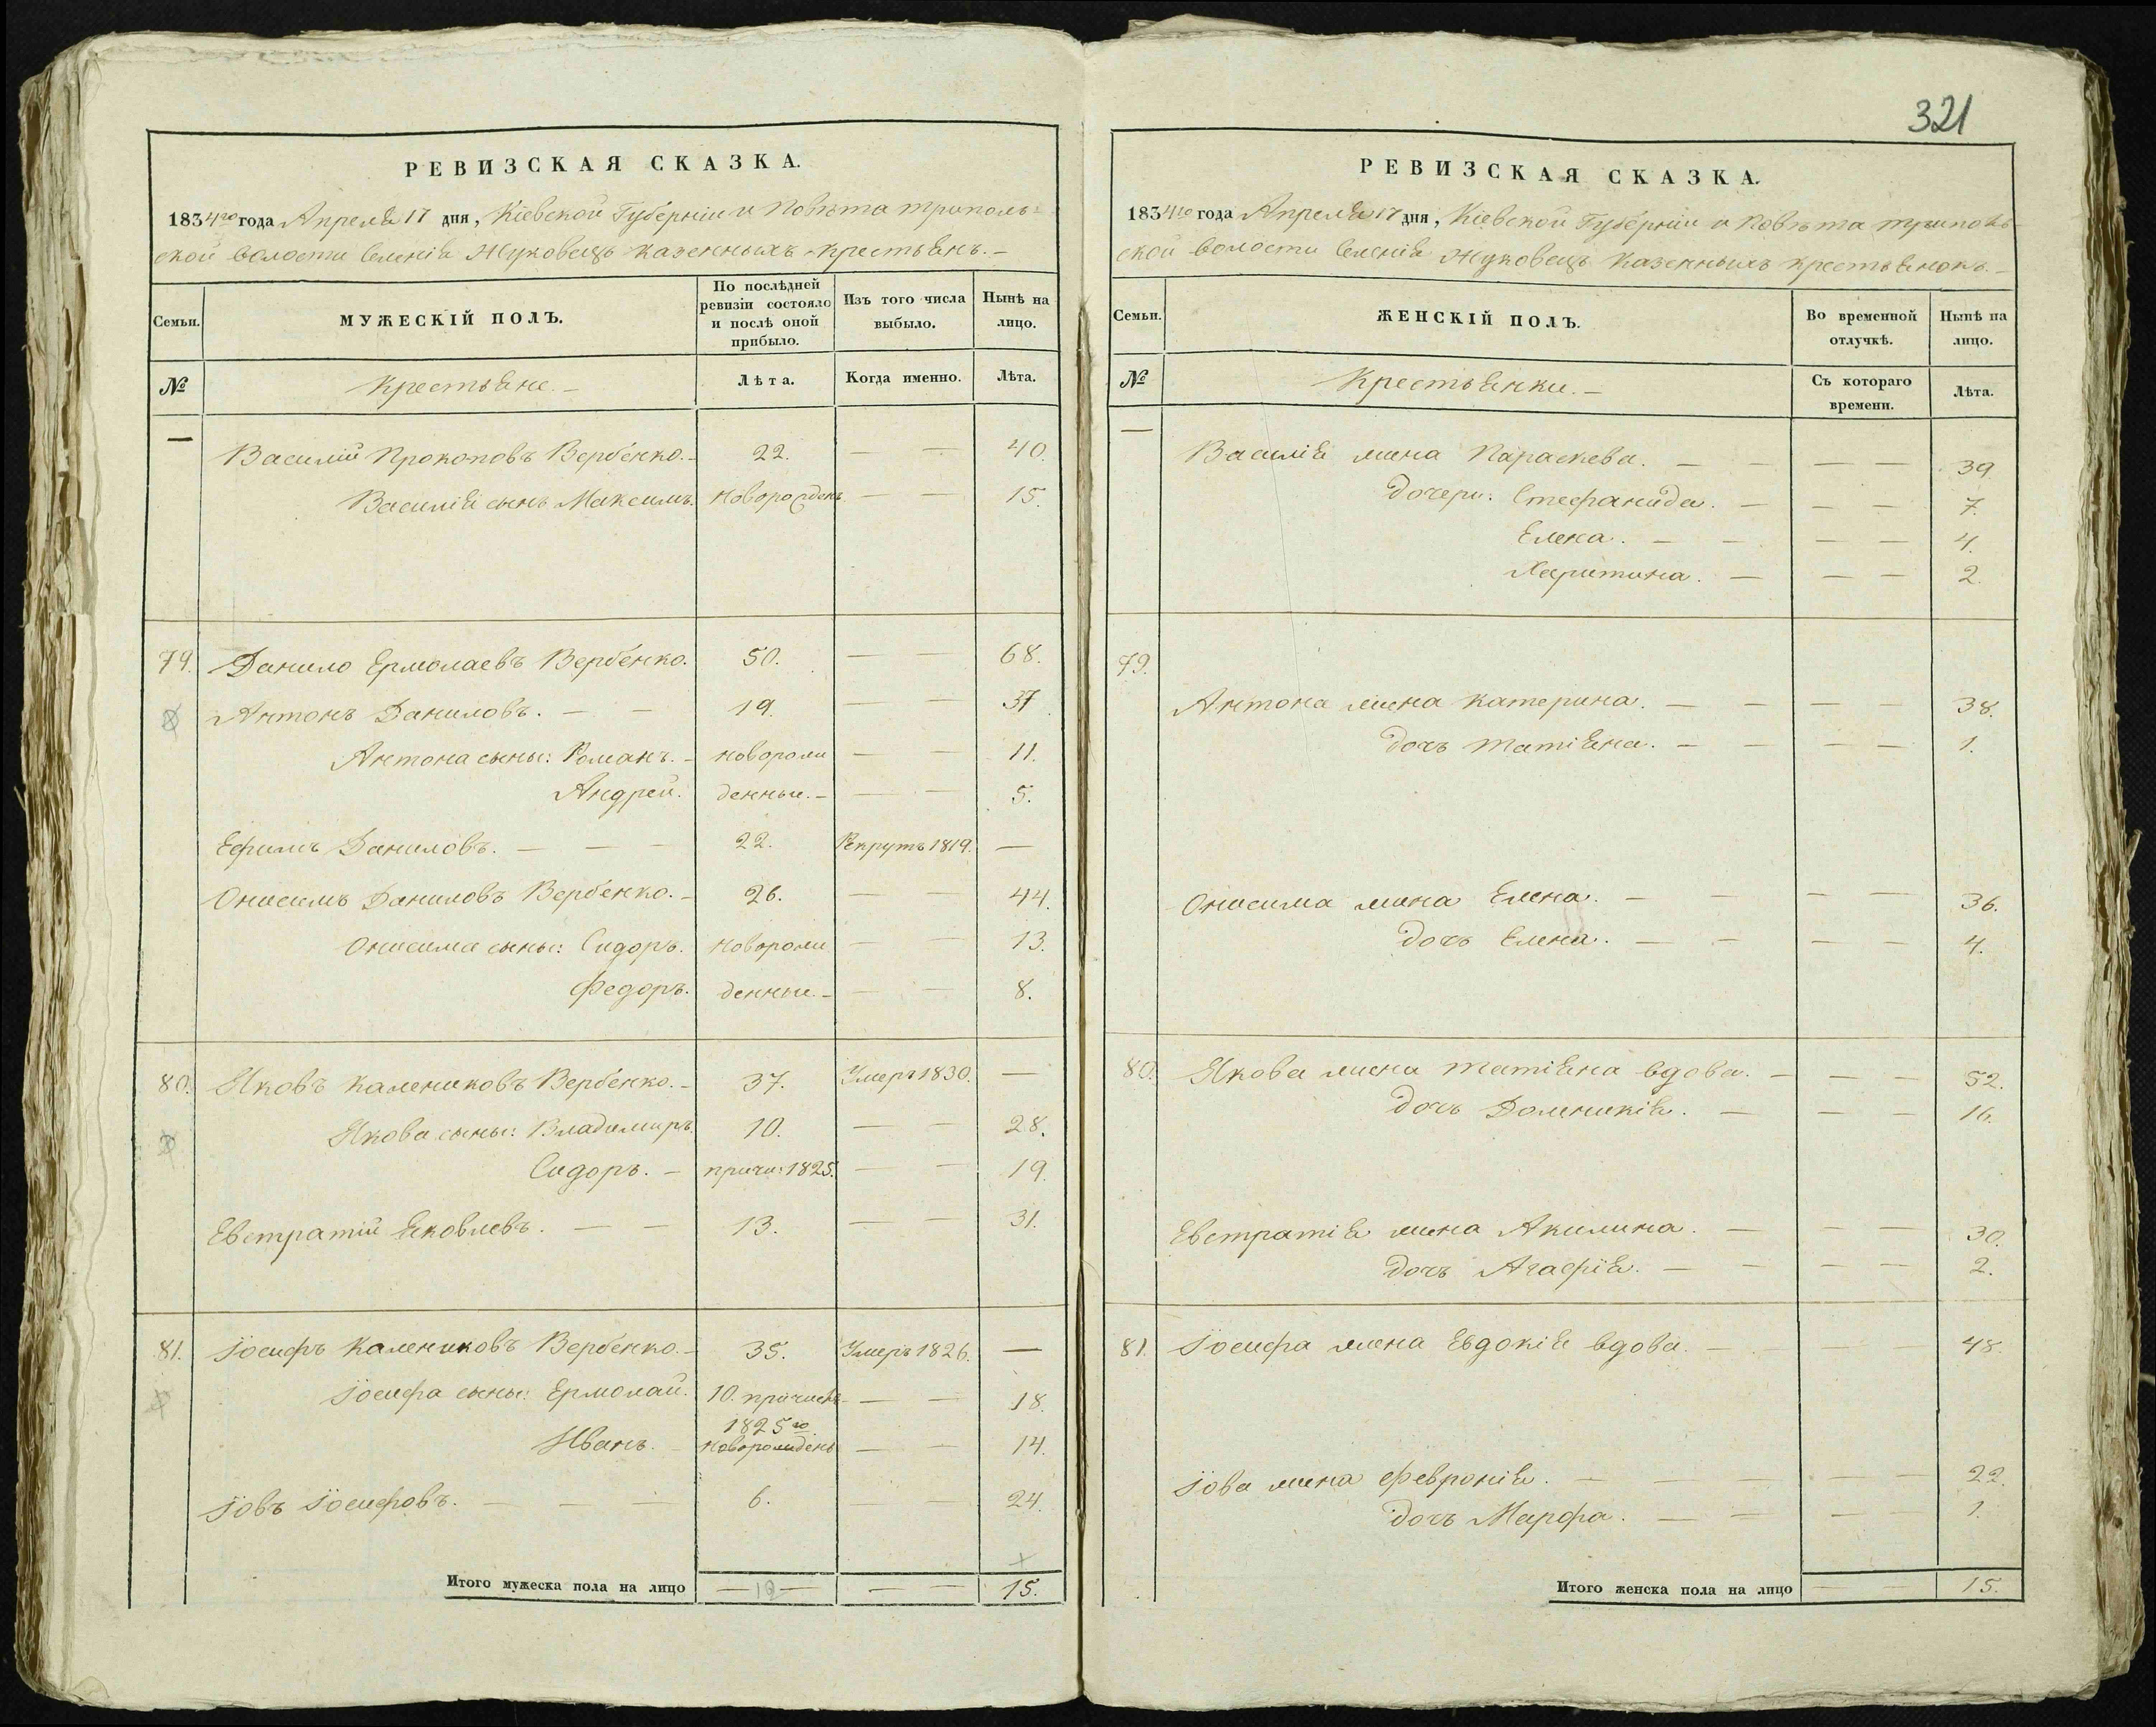 РЕВИЗСКАЯ СКАЗКА.
1834го года Апреля 17 дня, Кіевской Губерніи и Повѣта триполь-
ской волости селенія Жуковецъ казенныхъ крестьянъ. —
Семьи.
МУЖЕСКІЙ ПОЛЪ.
По послѣдней
ревизіи состояло
и послѣ оной
прибыло.
Изъ того числа
выбыло.
Нынѣ на
лицо.
№
Крестьяне. —
Лѣта.
Когда именно.
Лѣта.
— Василій Прокоповъ Вербенко. — 22. — — 40.
Василія сынъ Максимъ. новорожденъ — — 15.
79. Данило Ермолаевъ Вербенко. 50. — — 68.
Антонъ Даниловъ. — — 19. — — 37
Антона сыны: Романъ. — новорож — — 11.
Андрей. денные. — — — 5.
Ефимъ Даниловъ. — — — 22. Рекрутъ 1819. —
Онисимъ Даниловъ Вербенко. — 26. — — 44.
Онисима сыны: Сидоръ. новорож — — 13.
Федоръ. денные. — — — 8.
80. Яковъ Калениковъ Вербенко. — 37. Умеръ 1830. —
Якова сыны: Владимиръ. 10. — — 28.
Сидоръ. — причи: 1825. — — 19.
Евстратій Яковлевъ. — — 13. — — 31.
81. Іосифъ Калениковъ Вербенко. — 35. Умеръ 1826. —
Іосифа сыны: Ермолай. 10. причисл — — 18.
1825го
Иванъ. — новорожденъ — — 14.
Іовъ Іосифовъ. — — — 6. — 24.
Итого мужеска пола на лицо — 19 — — — 15.
321
РЕВИЗСКАЯ СКАЗКА.
1834го года Апреля 17 дня, Кіевской Губерніи и Повѣта триполь-
ской волости селенія Жуковецъ казенныхъ крестьянокъ. —
Семьи.
ЖЕНСКІЙ ПОЛЪ.
Во временной
отлучкѣ.
Нынѣ на
лицо.
№
Крестьянки. —
Съ котораго
времени.
Лѣта.
— Василія жена Параскева. — — — — 39.
дочери: Стефанида. — — — 7.
Елена. — — — — 4.
Харитина. — — — 2.
79.
Антона жена Катерина. — — — — 38.
дочь Татіяна. — — — — 1.
Онисима жена Елена. — — — — 36.
дочь Елена. — — — — 4.
80. Якова жена Татіяна вдова. — — — 52.
дочь Доминикія. — — — 16.
Евстратія жена Акилина. — — — 30.
дочь Агафія. — — — — 2.
81. Іосифа жена Евдокія вдова. — — — — 48.
Іова жена Февронія. — — — — — 22.
дочь Марфа. — — — — 1.
Итого женска пола на лицо — — 15.